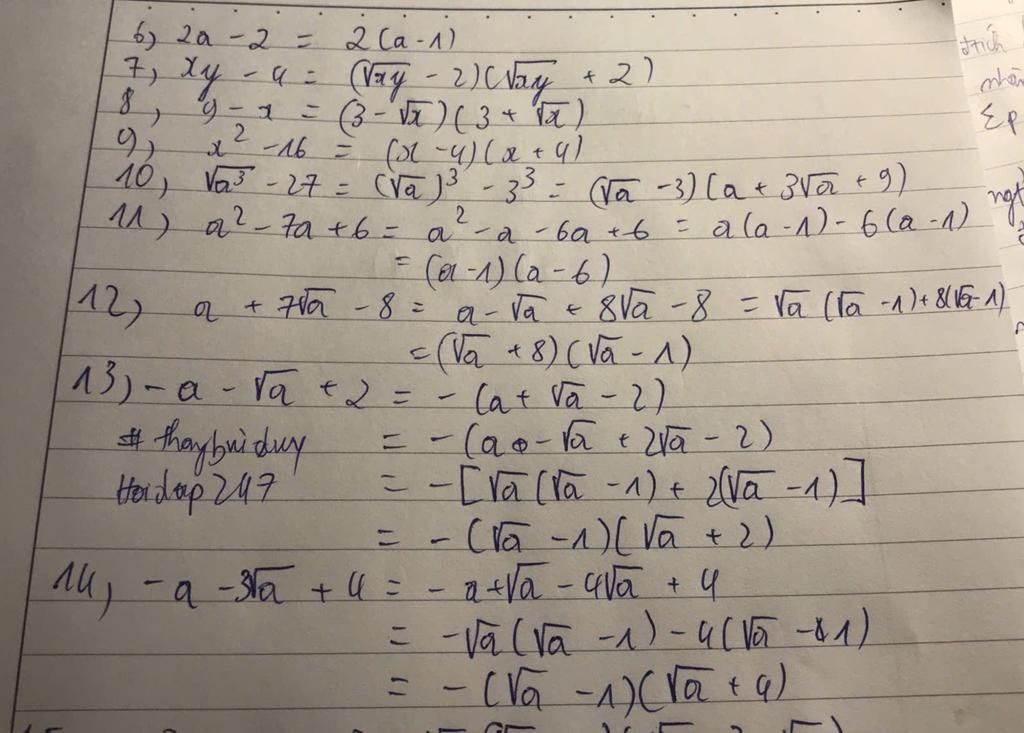 6, 2a - 2 = 2(a-1)
7, xy - 4 = (√xy - 2)(√xy + 2)
8, 9 - x = (3 - √x)(3 + √x)
9, x² - 16 = (x - 4)(x + 4)
10, √a³ - 27 = (√a)³ - 3³ = (√a - 3)(a + 3√a + 9)
11, a² - 7a + 6 = a² - a - 6a + 6 = a(a - 1) - 6(a - 1)
= (a - 1)(a - 6)
12, a + 7√a - 8 = a - √a + 8√a - 8 = √a(√a - 1) + 8(√a - 1)
= (√a + 8)(√a - 1)
13, -a - √a + 2 = -(a + √a - 2)
# thaybuiduy = -(a - √a + 2√a - 2)
Hoidap247 = -[√a(√a - 1) + 2(√a - 1)]
= -(√a - 1)(√a + 2)
14, -a - 3√a + 4 = -a + √a - 4√a + 4
= -√a(√a - 1) - 4(√a - 1)
= -(√a - 1)(√a + 4)